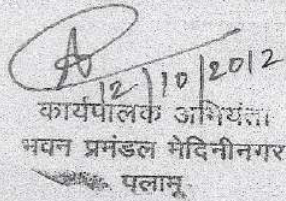 12/10/2012
कार्यपालक अभियंता
भवन प्रमंडल मेदिनीनगर
पलामू